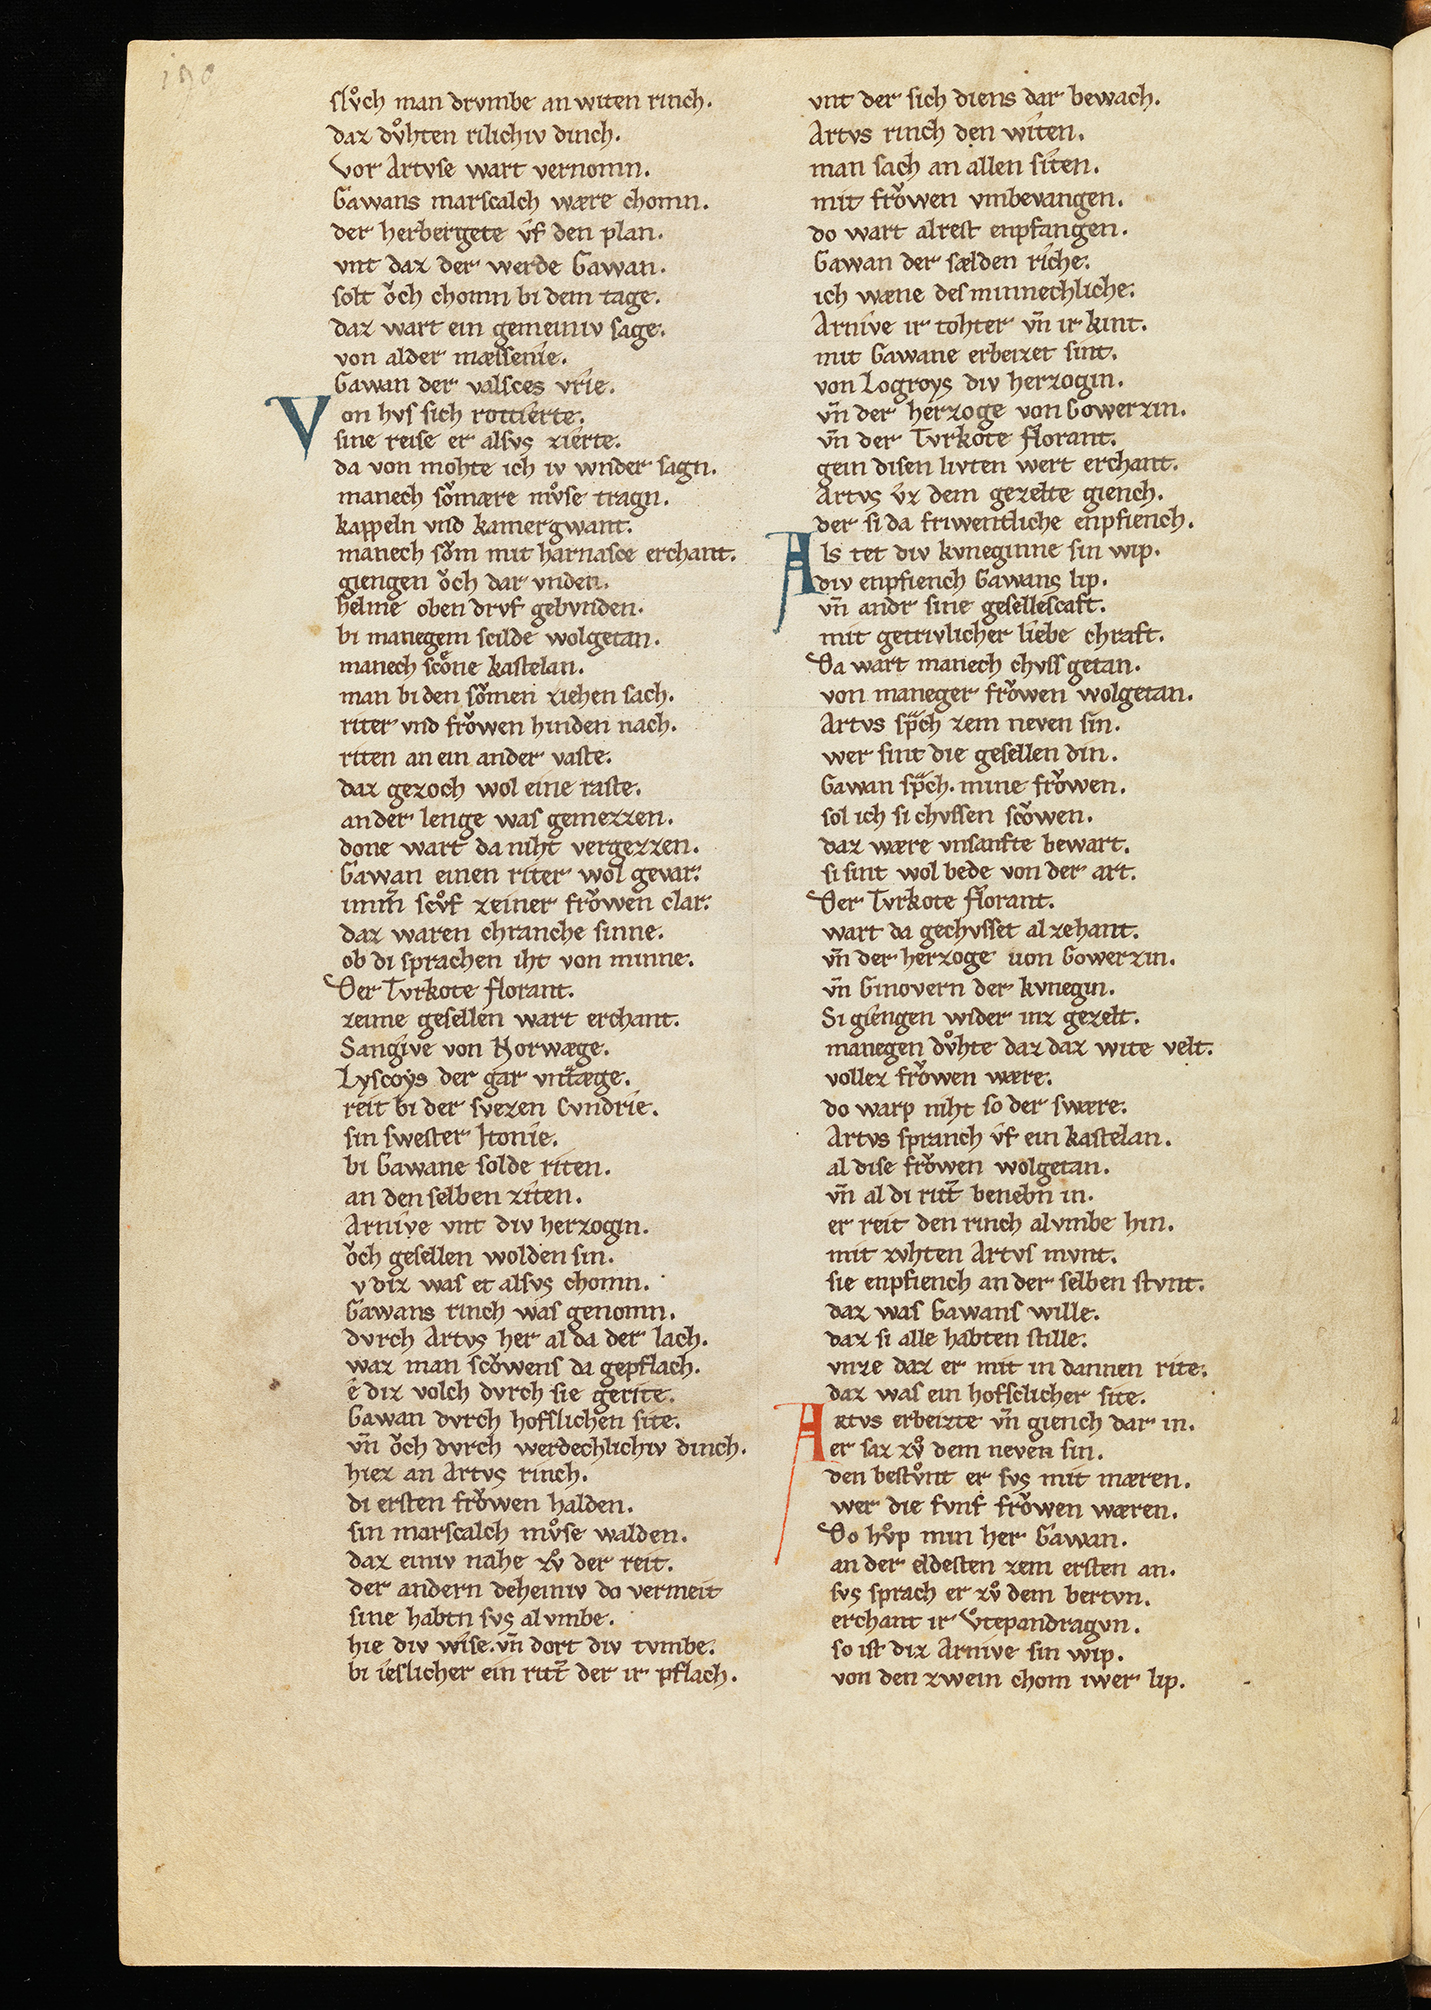 slůch man drvmbe an witen rinch.
daz dv̊hten rilichiv dinch.
Vor Artvse wart vernomn.
Gawans marscalch wære chomn.
der herbergete v̂f den plan.
vnt daz der werde Gawan.
solt ǒch chomn bi dem tage.
daz wart ein gemeiniv sage.
von alder mæssenîe.
Gawan der valsces vrîe.
Von hvs sich rottîerte.
sine reise er alsvs zîerte.
da von mohte ich iv wnder sagn.
manech sǒmære mv̊se tragn.
kappeln vnd kamergwant.
manech sǒm mit harnasce erchant.
giengen ǒch dar vnden.
helme oben drvf gebvnden.
bi manegem scilde wolgetan.
manech scône kastelan.
man bi den sǒmen ziehen sach.
riter vnd frǒwen hinden nach.
riten an ein ander vaste.
daz gezoch wol eine raste.
an der lenge was gemezzen.
done wart da niht vergezzen.
Gawan einen riter wol gevar.
imm̄ scv̊f zeiner frǒwen clar.
daz waren chranche sinne.
ob di sprachen iht von minne.
Der Tvrkote florant.
zeime gesellen wart erchant.
Sangîve von Norwæge.
Lyscoys der gar vntræge.
reit bi der svezen Cvndrîe.
sin swester Itonîe.
bi Gawane solde riten.
an den selben zîten.
Arnîve vnt div herzogin.
ǒch gesellen wolden sin.
v diz was et alsvs chomn.
Gawans rinch was genomn.
dvrch Artvs her al da der lach.
waz man scǒwens da gepflach.
ê diz volch dvrch sie gerite.
Gawan dvrch hofslichen site.
vn̄ ǒch dvrch werdechlichiv dinch.
hiez an Artvs rinch.
di ersten frǒwen halden.
sin marscalch mv̊se walden.
daz einiv nahe zv̊ der reit.
der andern deheiniv do vermeit
sine habtn svs al vmbe.
hie div wîse. vn̄ dort div tvmbe.
bi ieslicher ein ritt̄ der ir pflach.
vnt der sich diens dar bewach.
Artvs rinch den wîten.
man sach an allen sîten.
mit frǒwen vmbevangen.
do wart alrest enpfangen.
Gawan der sælden rîche.
ich wæne des minnechliche.
Arnîve ir tohter vn̄ ir kint.
mit Gawane erbeizet sint.
von Logroys div herzogin.
vn̄ der herzoge von Gowerzin.
vn̄ der Tvrkote florant.
gein disen livten wert erchant.
Artvs v̂z dem gezelte giench.
der si da friwentliche enpfiench.
Als tet div kvneginne sin wip.
div enpfiench Gawans lip.
vn̄ andr sine gesellescaft.
mit getrivlicher liebe chraft.
Da wart manech chvss getan.
von maneger frǒwen wolgetan.
Artvs spͣch zem neven sin.
wer sint die gesellen din.
Gawan spͣch. mine frǒwen.
sol ich si chvssen scǒwen.
daz wære vnsanfte bewart.
si sint wol bede von der art.
Der Tvrkote florant.
wart da gechvsset al zehant.
vn̄ der herzoge uon Gowerzin.
vn̄ Ginovern der kvnegin.
Si giêngen wider inz gezelt.
manegen dv̊hte daz daz wite velt.
vollez frǒwen wære.
do warp niht so der swære.
Artvs spranch v̂f ein kastelan.
al dise frǒwen wolgetan.
vn̄ al di ritt̄ benebn in.
er reit den rinch al vmbe hin.
mit zvhten Artvs mvnt.
sie enpfiench an der selben stvnt.
daz was Gawans wille.
daz si alle habten stille.
vnze daz er mit in dannen rite.
daz was ein hofsclicher site.
Artvs erbeizte vn̄ giench dar in.
er saz zv̊ dem neven sin.
den bestv̊nt er svs mit mæren.
wer die fvnf frǒwen wæren.
Do hv̊p min her Gawan.
an der eldesten zem ersten an.
svs sprach er zv̊ dem bertvn.
erchant ir v̊tepandragvn.
so ist diz Arnive sin wip.
von den zwein chom iwer lip.